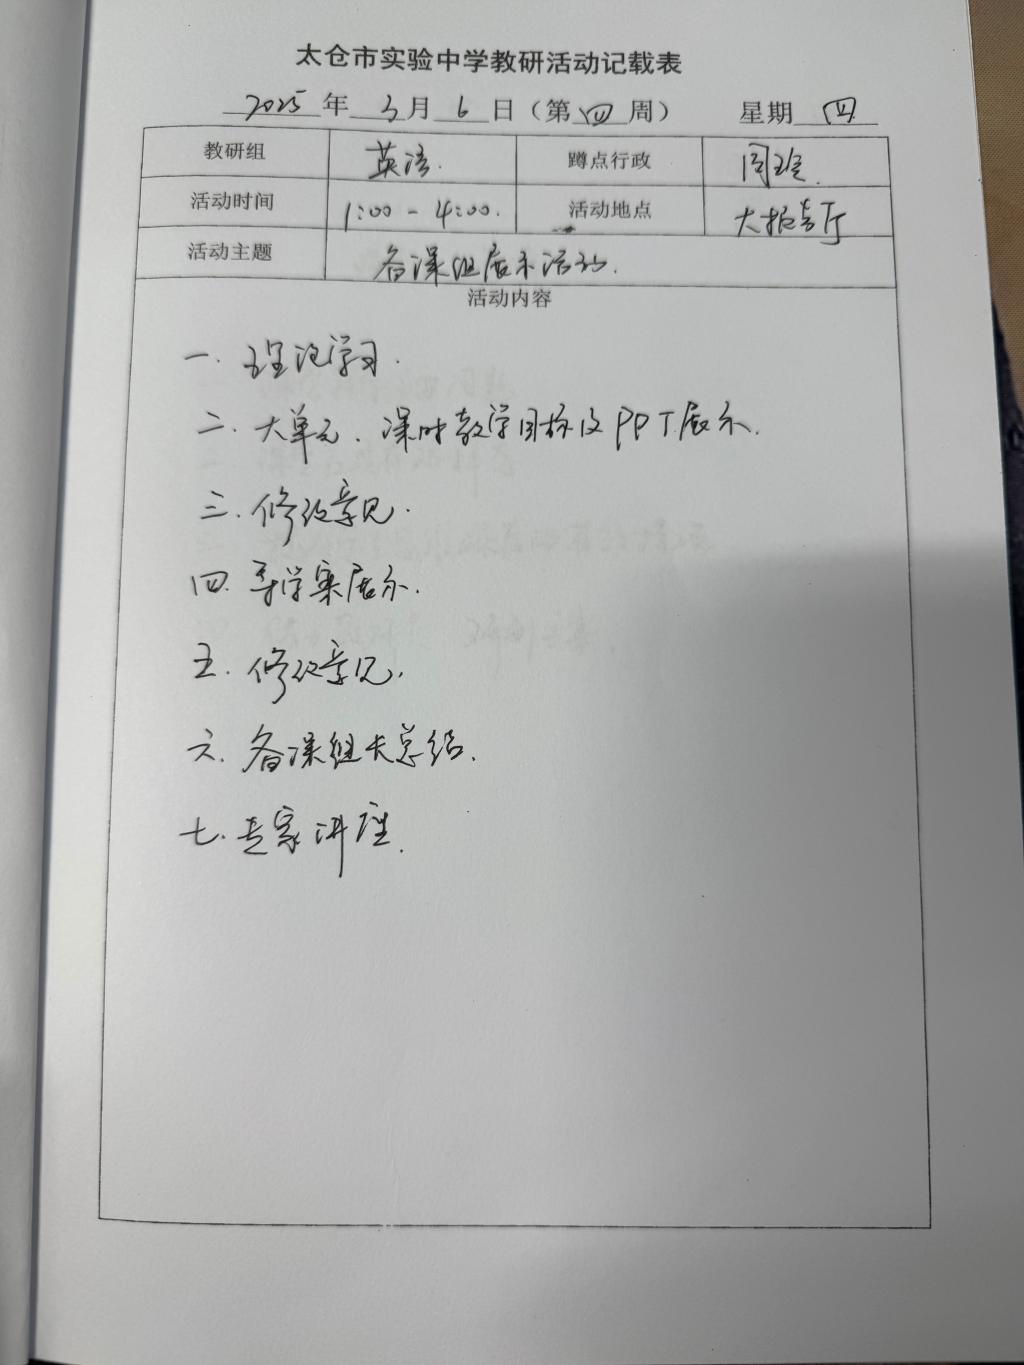 太仓市实验中学教研活动记载表
2025 年 3 月 6 日（第 四 周） 星期 四
教研组 英语. 蹲点行政 周
活动时间 1:00 - 4:00. 活动地点 大报告厅
活动主题 备课组展示活动.
活动内容
一. 理论学习.
二. 大单元、课时教学目标及PPT展示.
三. 修改意见.
四. 导学案展示.
五. 修改意见.
六. 备课组长总结.
七. 专家讲座.